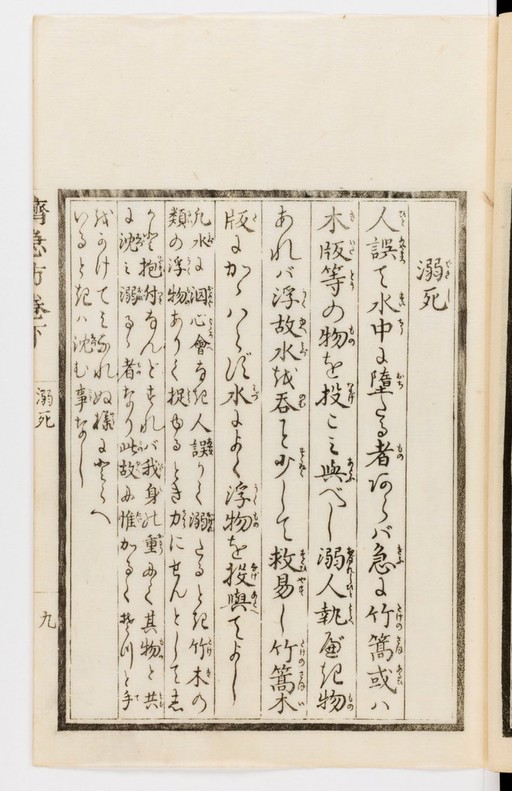 溺死
人誤て水中に墮たる者あらバ急に竹篙或ハ
木版等の物を投こミ與べし溺人執べき物
あれバ浮故水を呑こと少して救易し竹篙木
版にかゝハらず水によく浮物を投與てよし
凡水に泅心會なき人誤りて溺たるとき竹木の
類の浮物ありて捉ゆるとき力にせんとして志
かと抱付なんどすれバ我身の重みて其物と共
に沈ミ溺るゝ者なり此故に惟かるくそつと手
をかけてはなれぬ樣にとらへ
いるときハ沈む事なし
濟急方卷下
溺死
九